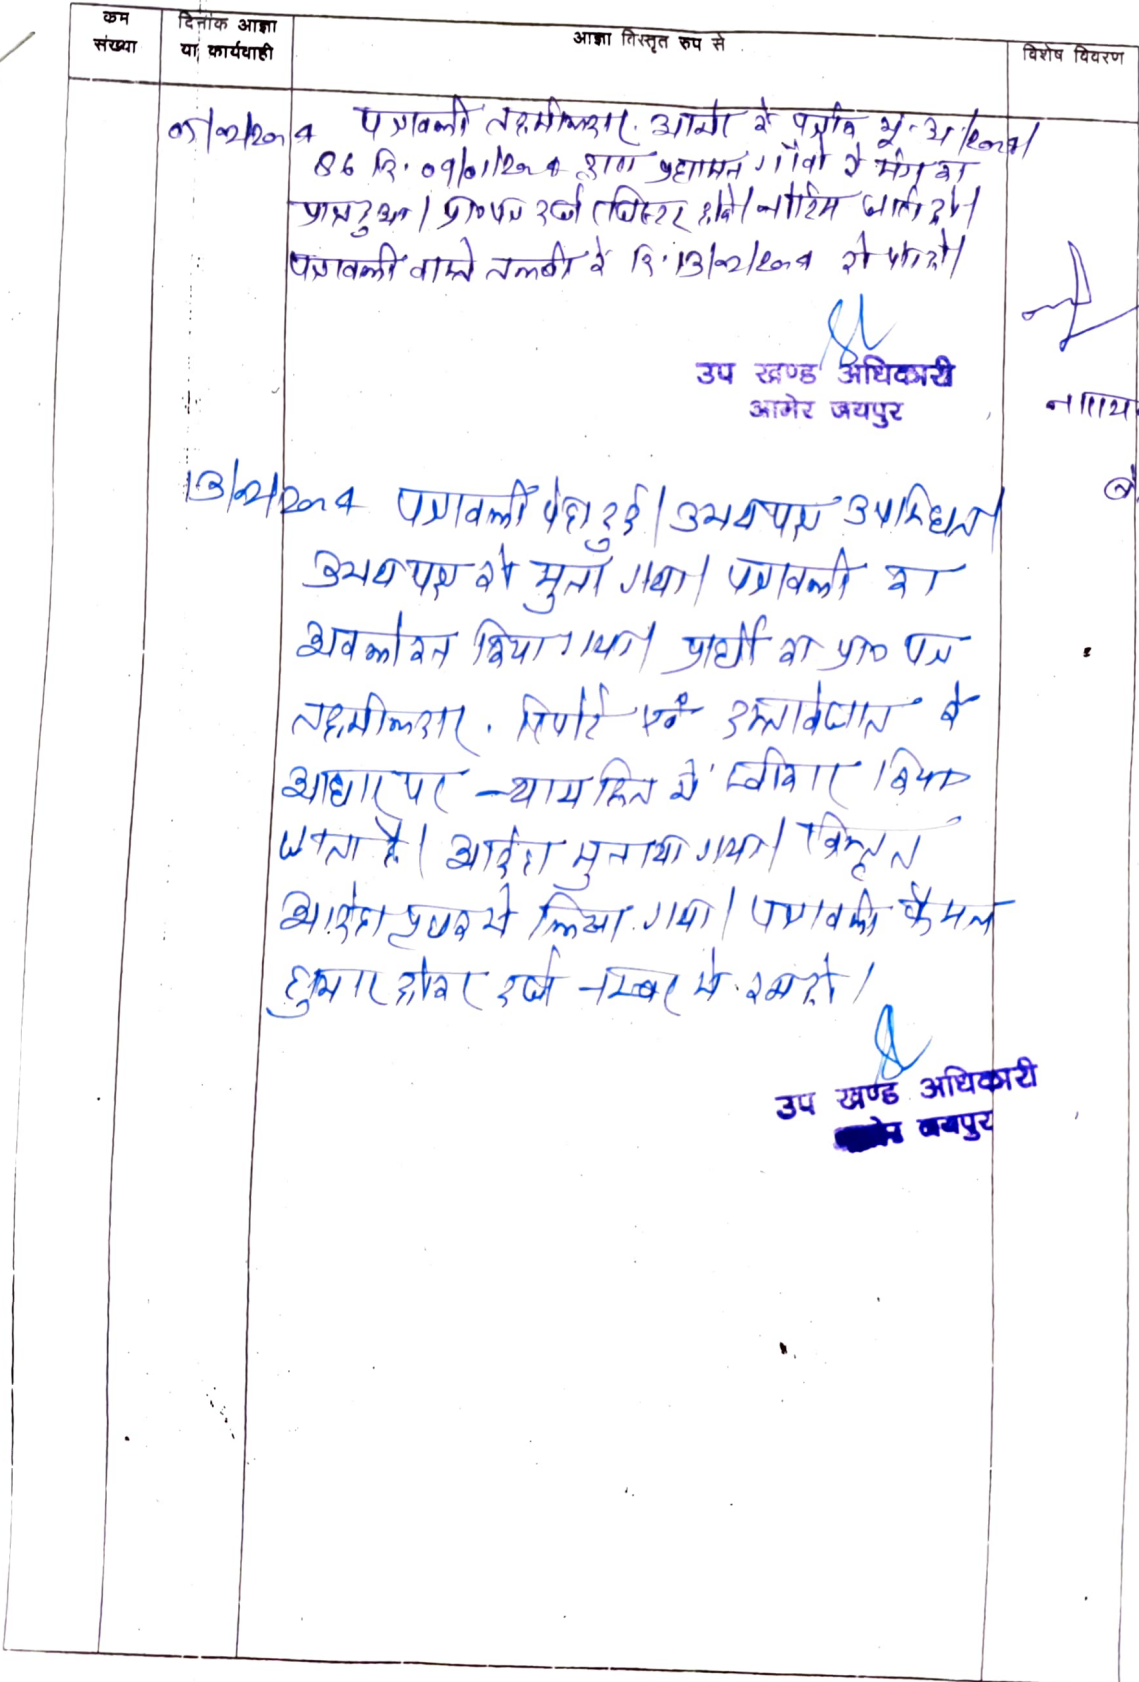 कम संख्या
दिनांक आज्ञा या कार्यवाही
आज्ञा विस्तृत रुप से
विशेष विवरण
पत्रावली तहसीलदार आमेर के पत्रांक भू.अ/
86 दि. 09/01/2024 द्वारा प्रशासन गाँवों के संग का
प्राप्त हुआ। प्रा०पत्र दर्ज रजिस्टर होवे। नोटिस जारी हो।
पत्रावली वास्ते तलबी के दि. 13/02/2024 को पेश हो।
उप खण्ड अधिकारी
आमेर जयपुर
13/02/2024 पत्रावली पेश हुई। उभयपक्ष उपस्थित।
उभयपक्ष को सुना गया। पत्रावली का
अवलोकन किया गया। प्रार्थी का प्रा० पत्र
तहसीलदार रिपोर्ट एवं दस्तावेजात के
आधार पर न्यायहित में स्वीकार किया
जाता है। आदेश सुनाया गया। विस्तृत
आदेश पृथक से लिखा गया। पत्रावली फैसल
शुमार होकर दर्ज नम्बर से कम हो।
उप खण्ड अधिकारी
जयपुर